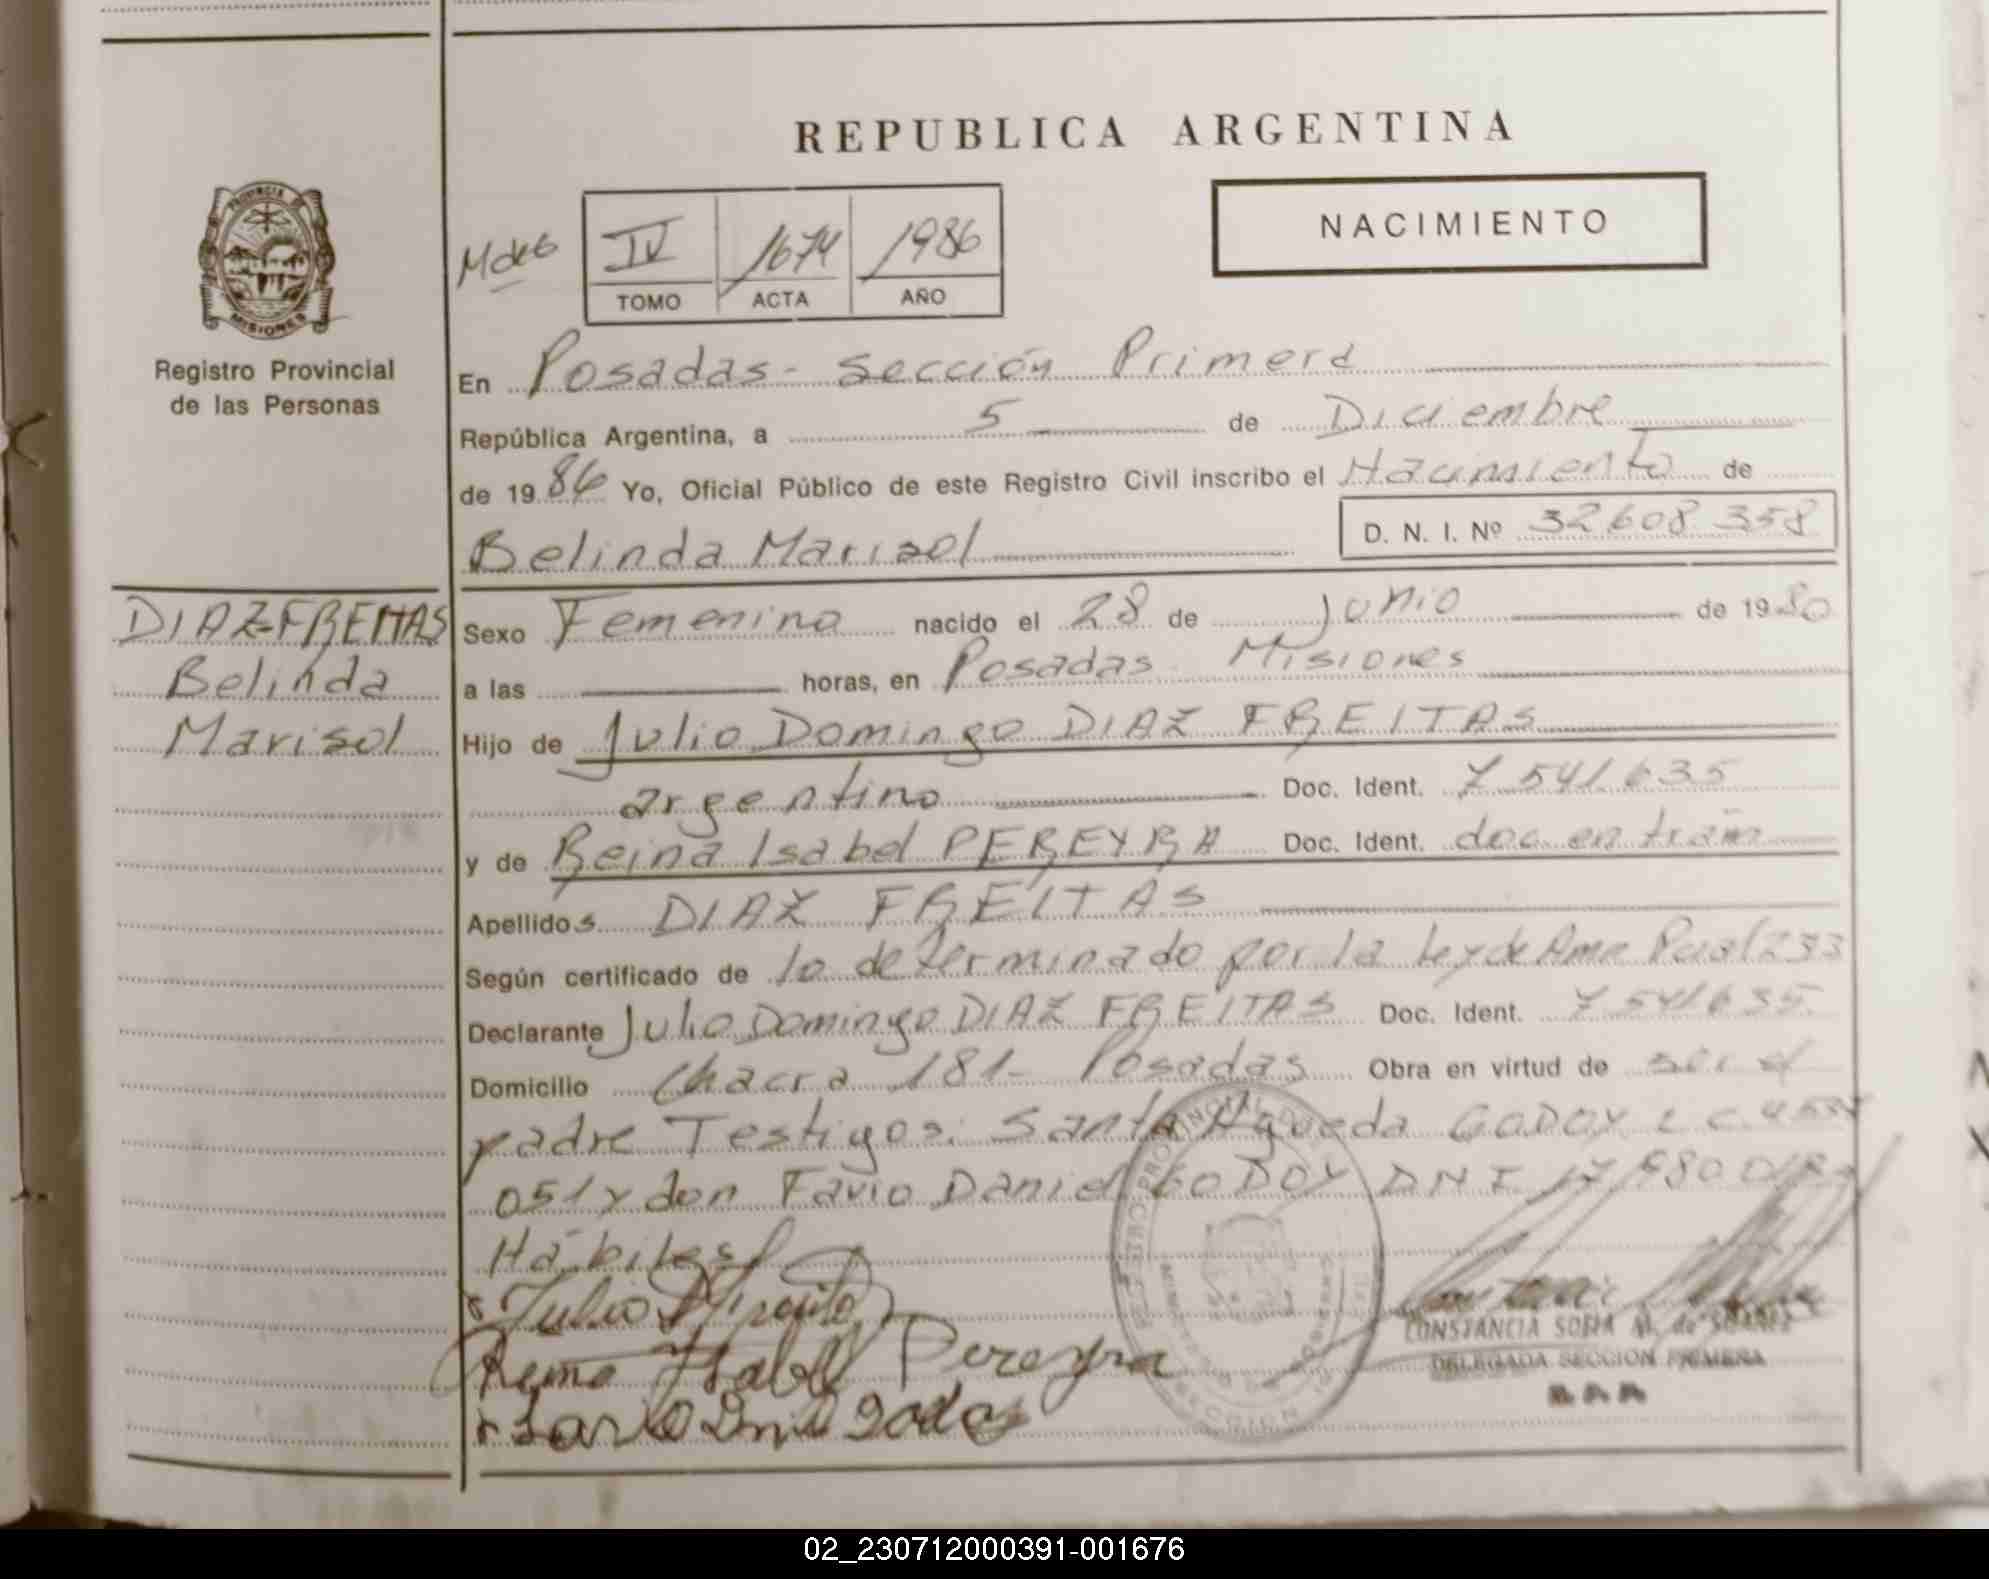 REPUBLICA ARGENTINA
NACIMIENTO
IV 1674 1986
TOMO ACTA AÑO
PROVINCIA DE
MISIONES
Registro Provincial
de las Personas
En Posadas - Sección Primera
República Argentina, a 5 de Diciembre
de 1986 Yo, Oficial Público de este Registro Civil inscribo el Nacimiento de
Belinda Marisol D. N. I. Nº 32608358
DIAZ-FREITAS
Belinda
Marisol
Sexo Femenino nacido el 28 de Junio de 1980
a las horas, en Posadas Misiones
Hijo de Julio Domingo DIAZ FREITAS
argentino Doc. Ident. 7541.635
y de Reina Isabel PEREYRA Doc. Ident. doc en trám
Apellidos DIAZ FREITAS
Según certificado de lo determinado por la Ley de
Declarante Julio Domingo DIAZ FREITAS Doc. Ident. 7541635
Domicilio Chacra 181 - Posadas Obra en virtud de ser el
padre Testigos: Santa Agueda GODOY L C
051 y don Favio Daniel GODOY DNI
Hábiles
Isabel Pereyra
CONSTANCIA SOFIA
DELEGADA SECCION PRIMERA
02_230712000391-001676